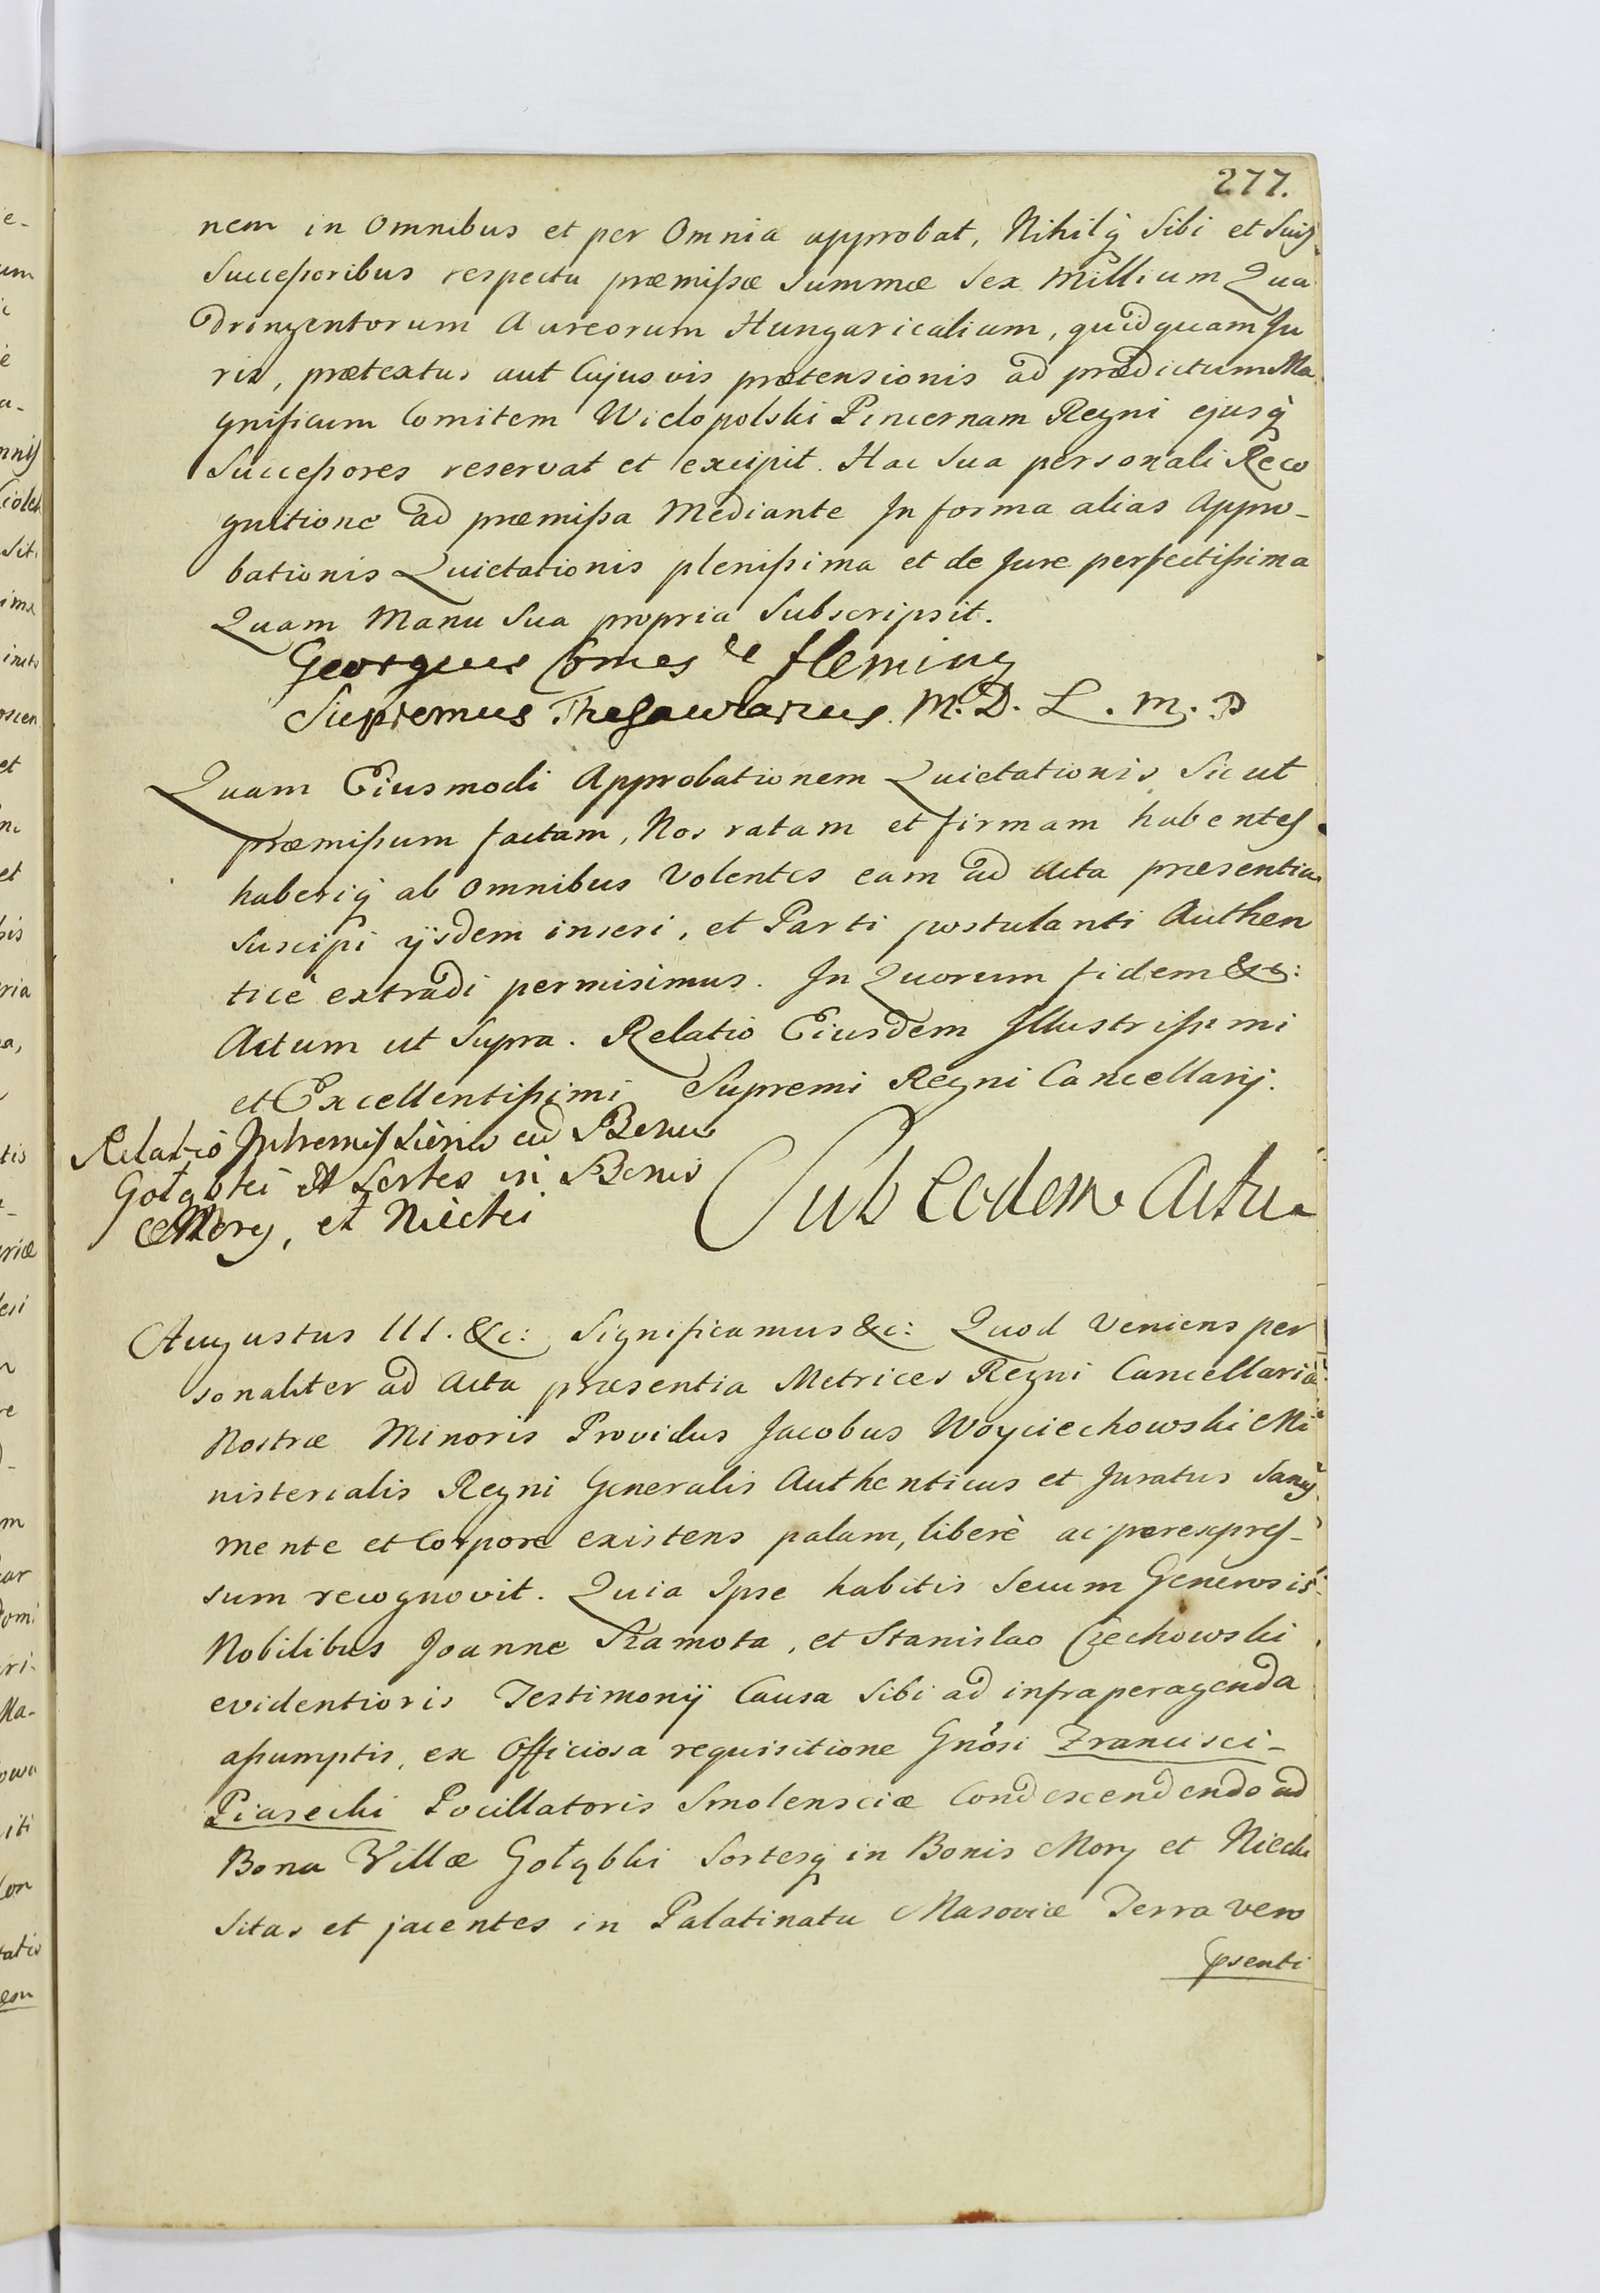 277.
nem in Omnibus et per Omnia approbat, Nihilq́ Sibi et Suis
Successoribus respectu præmissæ Summæ Sex Millium Qua
dringentorum Aureorum Hungaricalium, quidquam Ju
ris, prætextus aut Cujusvis prætensionis ad prædictum Ma
gnificum Comitem Wielopolski Pincernam Regni ejusq́
Successores reservat et excipit. Hac Sua personali Reco
gnitione ad præmissa Mediante In forma alias Appro-
bationis Quietationis plenissima et de Jure perfectissima
Quam Manu Sua propria Subscripsit.
Georgius Comes de Fleming
Supremus Thesaurarius M. D. L. m. p
Quam Eiusmodi Approbationem Quietationis Sicut
præmissum factam, Nos ratam et firmam habentes
haberiq́ ab Omnibus Volentes eam ad Acta præsentia
Suscipi ijsdem inseri, et Parti postulanti Authen
ticè extradi permisimus. In Quorum fidem &c:
Actum ut Supra. Relatio Eiusdem Illustrissimi
et Excellentissimi Supremi Regni Cancellarij.
Relatio Intromissionis ad Bona
Gołąbki et Sortes in Bonis
Mory, et Niecki
Sub Eodem Actu
Augustus III. &c: Significamus &c: Quod Veniens per
sonaliter ad Acta præsentia Metrices Regni Cancellariæ
Nostræ Minoris Providus Jacobus Woyciechowski Mi
nisterialis Regni Generalis Authenticus et Juratus Sanus
mente et Corpore existens palam, liberè ac per expres-
sum recognovit. Quia Ipse habitis Secum Generosis
Nobilibus Joanne Szamota, et Stanislao Czechowski
evidentioris Testimonij Causa Sibi ad infra peragenda
assumptis, ex Officiosa requisitione Gnosi Francisci
Piasecki Pocillatoris Smolensciæ Condescendendo ad
Bona Villæ Gołąbki Sortesq́ in Bonis Mory et Niecki
Sitas et jacentes in Palatinatu Masoviæ Terra vero
psenti